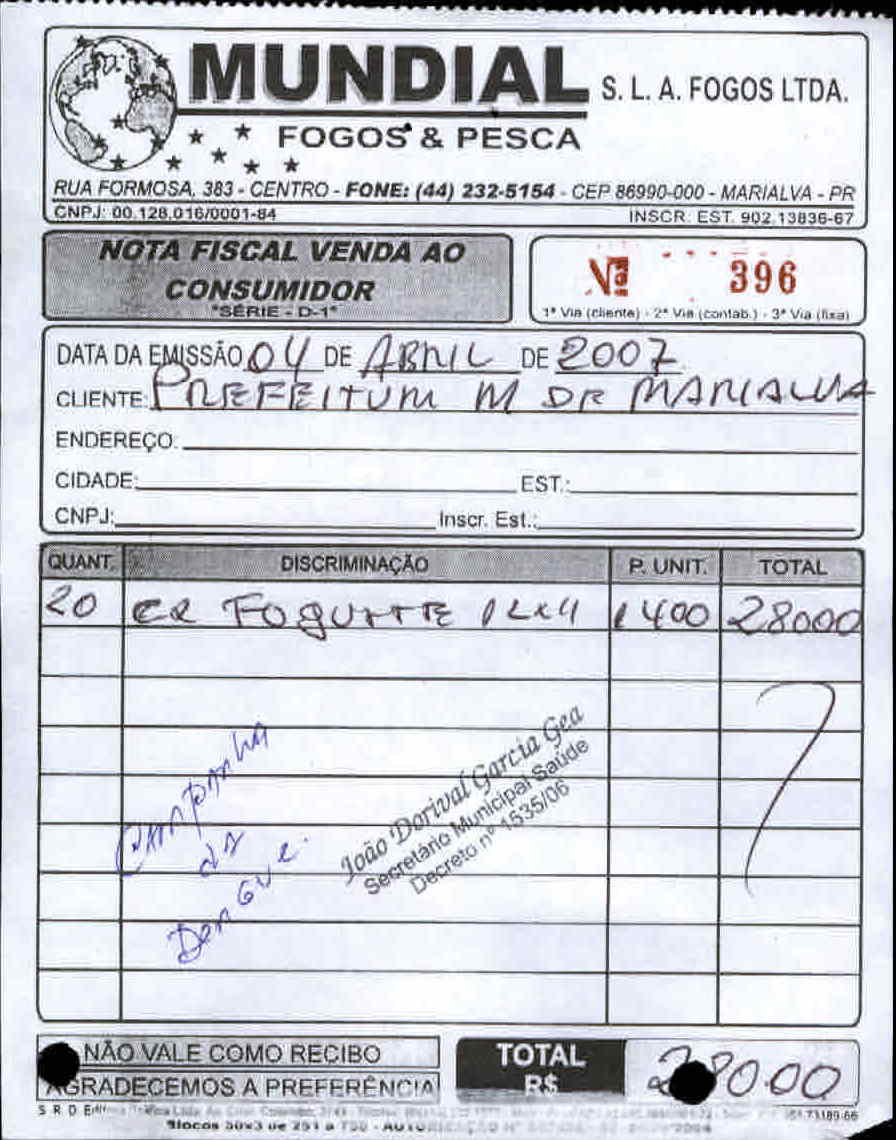 MUNDIAL S. L. A. FOGOS LTDA.
FOGOS & PESCA
RUA FORMOSA, 383 - CENTRO - FONE: (44) 232-5154 - CEP 86990-000 - MARIALVA - PR
CNPJ: 00.128.016/0001-84 INSCR. EST. 902.13836-67
NOTA FISCAL VENDA AO
CONSUMIDOR
"SÉRIE - D-1"
Nº 396
1ª Via (cliente) - 2ª Via (contab.) - 3ª Via (fixa)
DATA DA EMISSÃO 04 DE ABRIL DE 2007
CLIENTE: PREFEITURA M DE MARIALVA
ENDEREÇO:
CIDADE: EST.:
CNPJ: Inscr. Est.:
QUANT. DISCRIMINAÇÃO P. UNIT. TOTAL
20 CX FOGUETE 12x4 1400 28000
Campanha
da
Dengue.
João Dorival Garcia Gea
Secretário Municipal Saúde
Decreto nº 1535/06
NÃO VALE COMO RECIBO
AGRADECEMOS A PREFERÊNCIA
TOTAL
R$ 280.00
S R D
Blocos 50x3 de 251 a 750